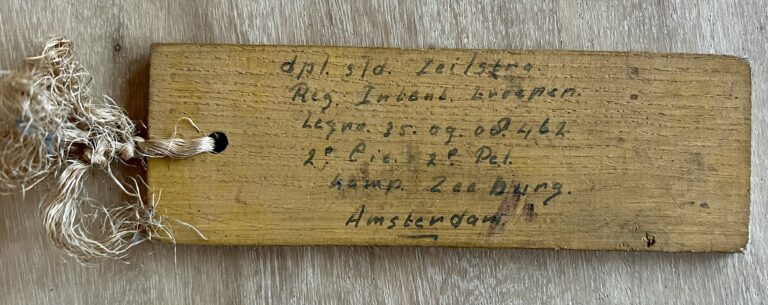 dpl. sld. Zeilstra.
Reg. Intend. troepen.
Legno. 25. 09. 08. 462.
2e Cie. 2e Pel.
Kamp. Zeeburg.
Amsterdam.